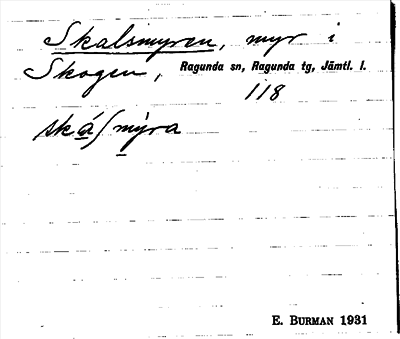 Skalsmyren, myr i
Skogen, Ragunda sn, Ragunda tg, Jämtl. l.
118
skáʃmýra
E. BURMAN 1931